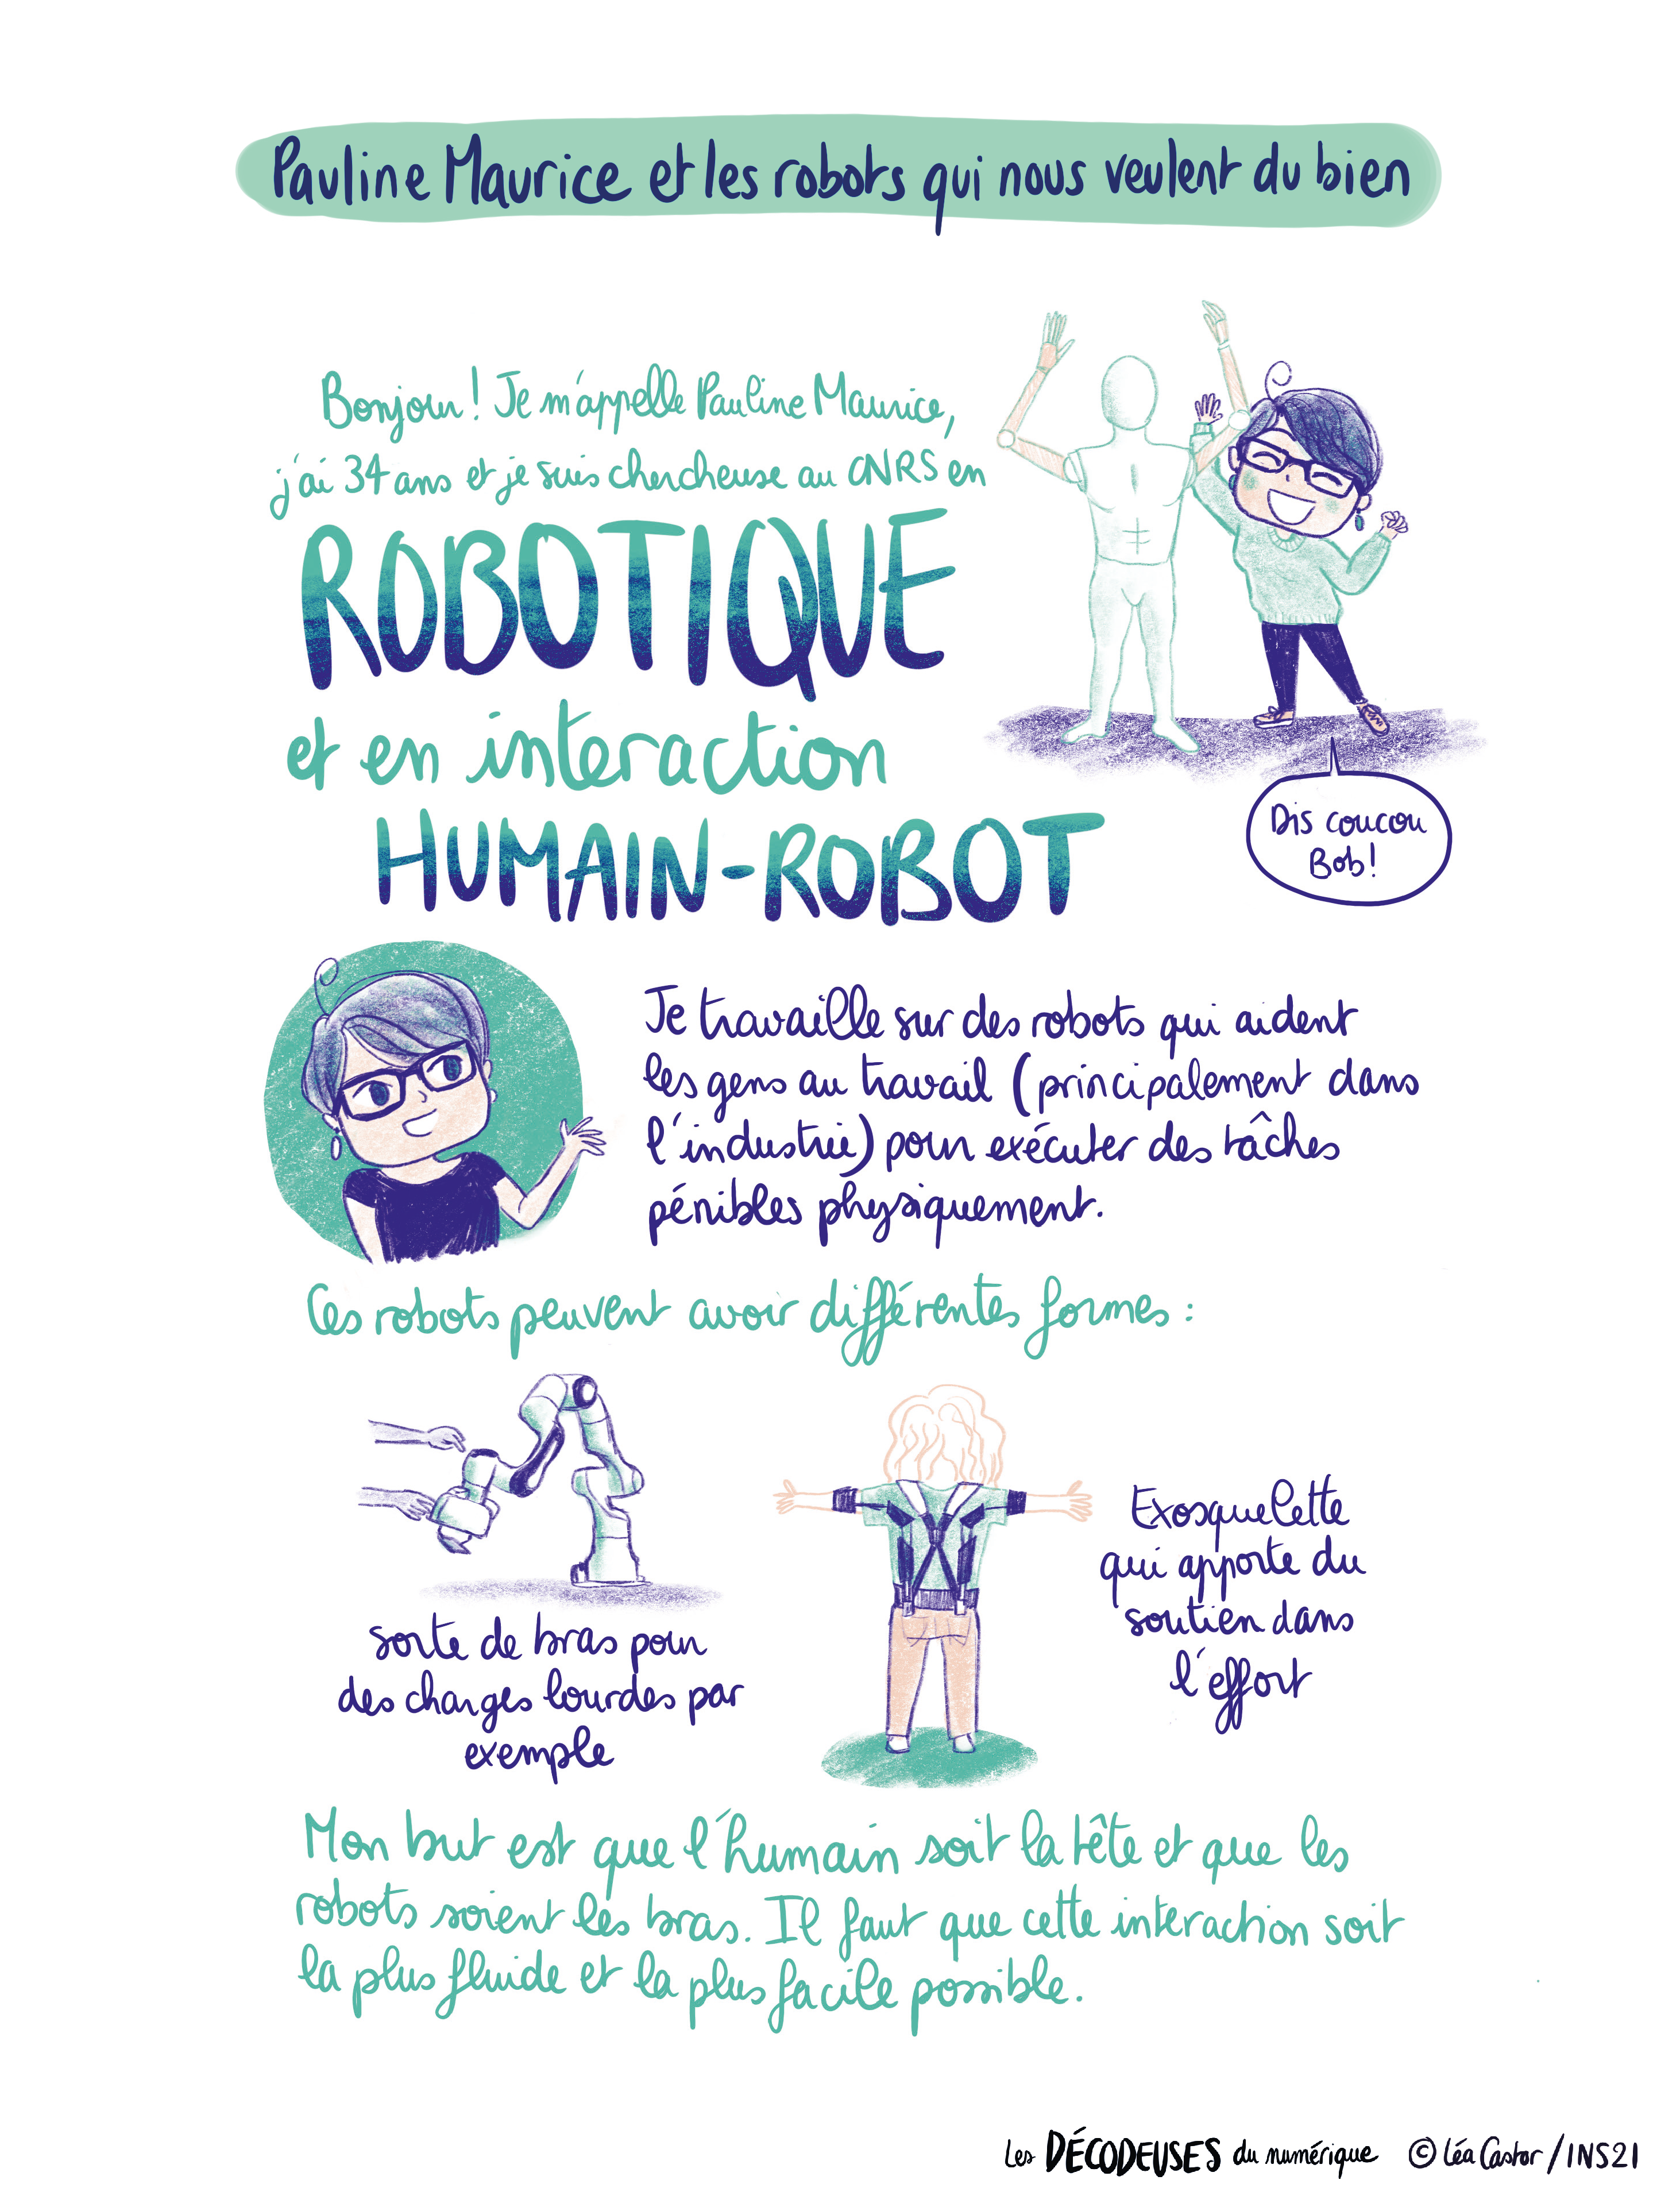 Pauline Maurice et les robots qui nous veulent du bien
Bonjour ! Je m'appelle Pauline Maurice,
j'ai 34 ans et je suis chercheuse au CNRS en
ROBOTIQUE
et en interaction
HUMAIN-ROBOT
Dis coucou
Bob !
Je travaille sur des robots qui aident
les gens au travail (principalement dans
l'industrie) pour exécuter des tâches
pénibles physiquement.
Ces robots peuvent avoir différentes formes :
sorte de bras pour
des charges lourdes par
exemple
Exosquelette
qui apporte du
soutien dans
l'effort
Mon but est que l'humain soit la tête et que les
robots soient les bras. Il faut que cette interaction soit
la plus fluide et la plus facile possible.
Les DÉCODEUSES du numérique © Léa Castor / INS2I